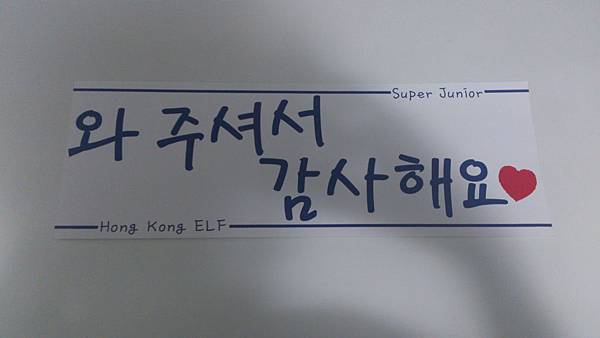 Super Junior
와 주셔서
감사해요
Hong Kong ELF